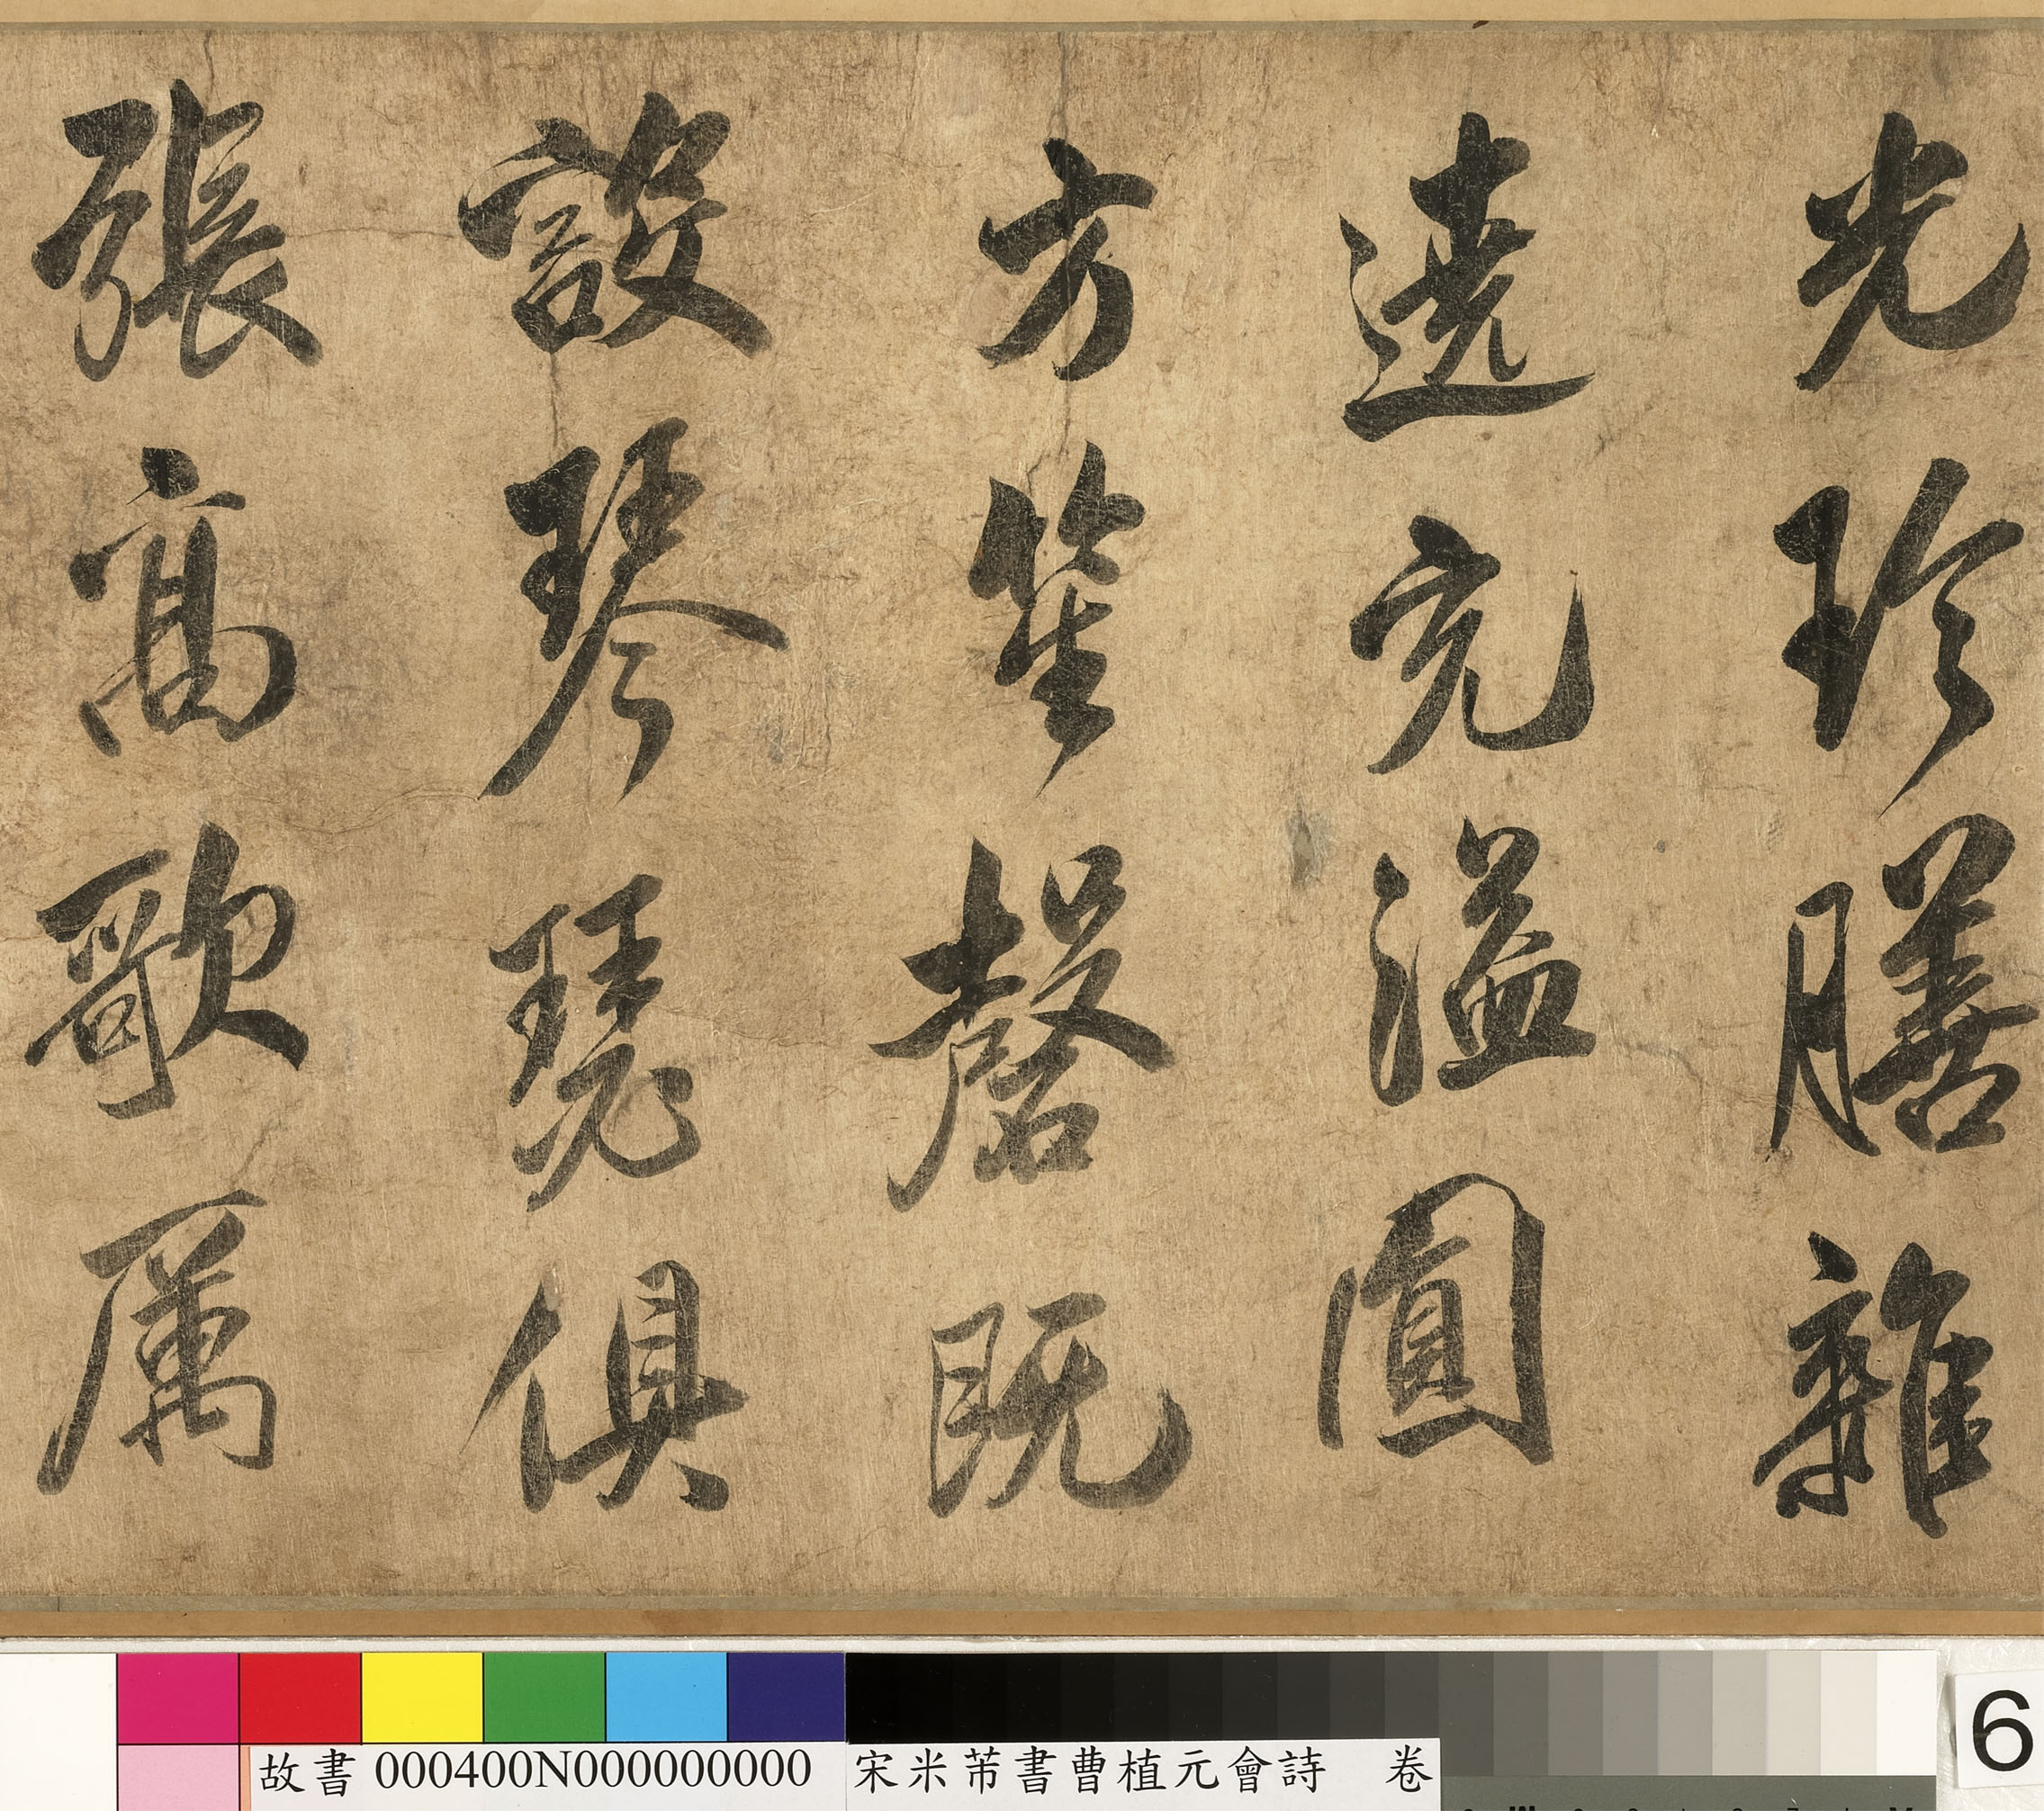 光珍膳雜
遶充溢圓
方笙磬既
設琴瑟俱
張高歌厲
故書 000400N000000000
宋米芾書曹植元會詩 卷
6